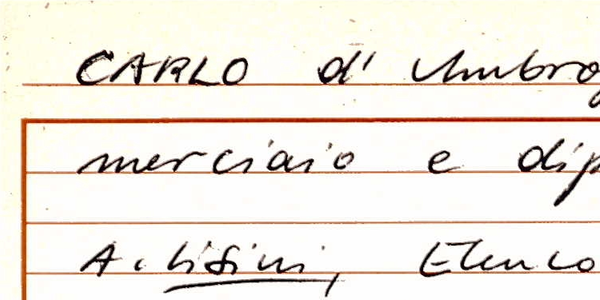 CARLO d' Ambrog
merciaio e dip
A. Lisini, Elenco